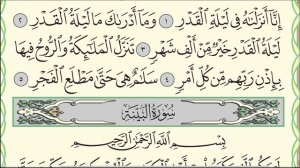 إِنَّا أَنزَلْنَٰهُ فِي لَيْلَةِ ٱلْقَدْرِ ١ وَمَآ أَدْرَىٰكَ مَا لَيْلَةُ ٱلْقَدْرِ ٢
لَيْلَةُ ٱلْقَدْرِ خَيْرٌ مِّنْ أَلْفِ شَهْرٍ ٣ تَنَزَّلُ ٱلْمَلَٰٓئِكَةُ وَٱلرُّوحُ فِيهَا
بِإِذْنِ رَبِّهِم مِّن كُلِّ أَمْرٍ ٤ سَلَٰمٌ هِيَ حَتَّىٰ مَطْلَعِ ٱلْفَجْرِ ٥
سُورَةُ البَيِّنَةِ
بِسْمِ ٱللَّهِ ٱلرَّحْمَٰنِ ٱلرَّحِيمِ